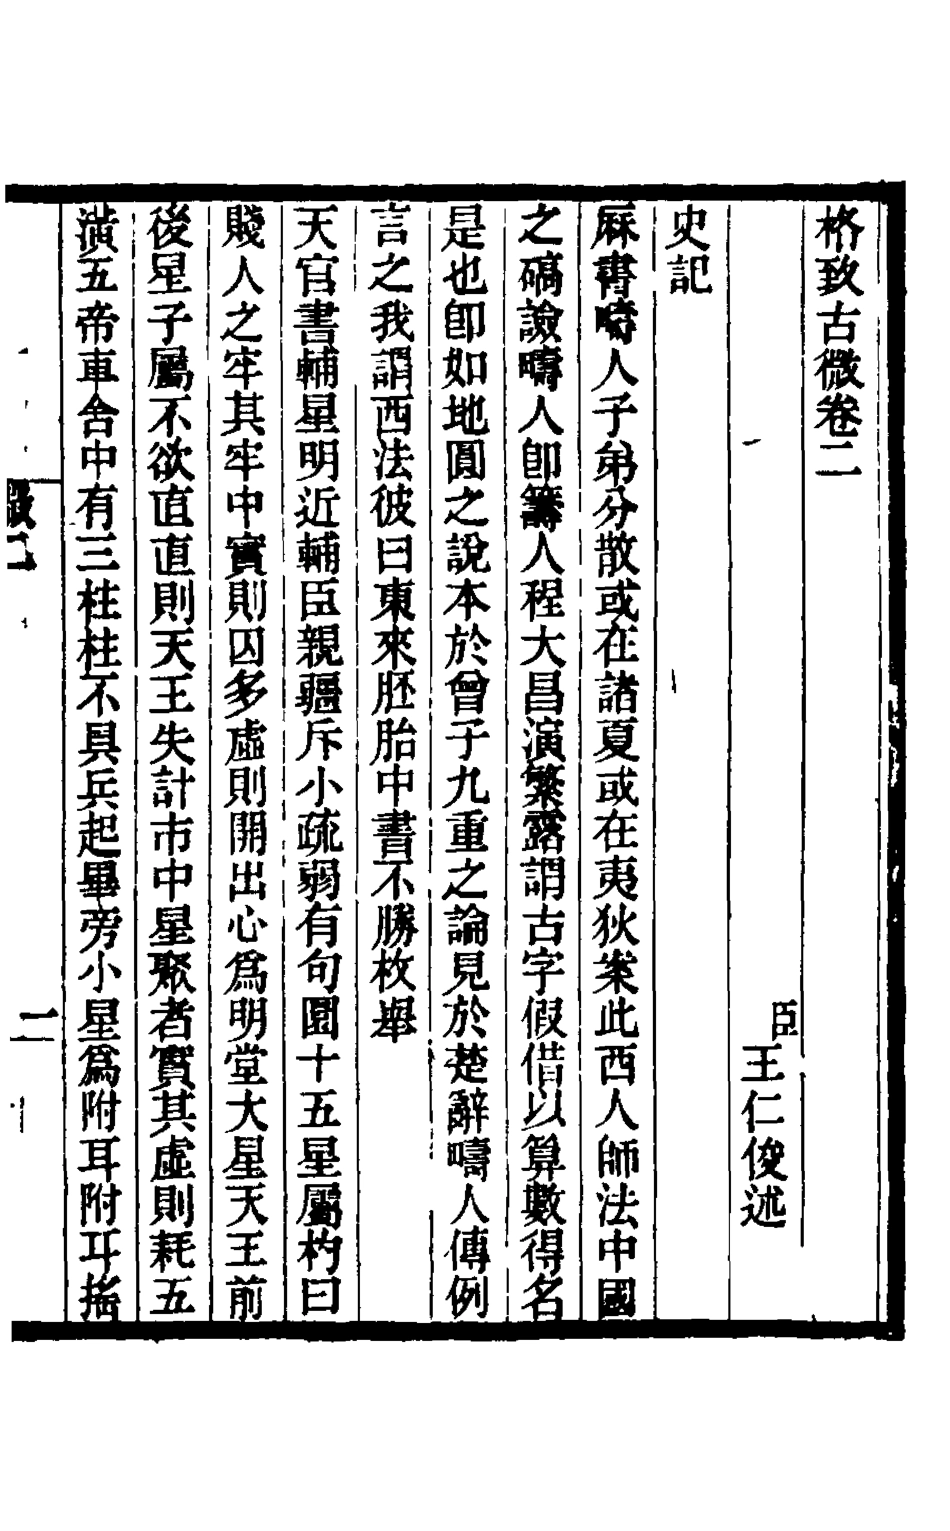 格致古微卷二
臣王仁俊述
史記
厤書疇人子弟分散或在諸夏或在夷狄案此西人師法中國
之碻譣疇人卽籌人程大昌演繁露謂古字假借以算數得名
是也卽如地圓之說本於曾子九重之論見於楚辭疇人傳例
言之我謂西法彼曰東來胚胎中書不勝枚舉
天官書輔星明近輔臣親彊斥小疏弱有句圜十五星屬杓曰
賤人之牢其牢中實則囚多虛則開出心爲明堂大星天王前
後星子屬不欲直直則天王失計市中星聚者實其虛則耗五
潢五帝車舍中有三柱柱不具兵起畢旁小星爲附耳附耳搖
二